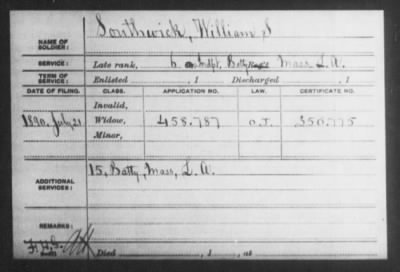 NAME OF SOLDIER: Southwick, William S
SERVICE: Late rank, 6 Indpt. Batty Reg't Mass L. A.
TERM OF SERVICE: Enlisted , 1 Discharged , 1
DATE OF FILING. CLASS. APPLICATION NO. LAW. CERTIFICATE NO.
Invalid,
1890. July, 21 Widow, 458.787 O.L. 350.775
Minor,
ADDITIONAL SERVICES: 15, Batty, Mass, L. A.
REMARKS:
Died , 1 , at